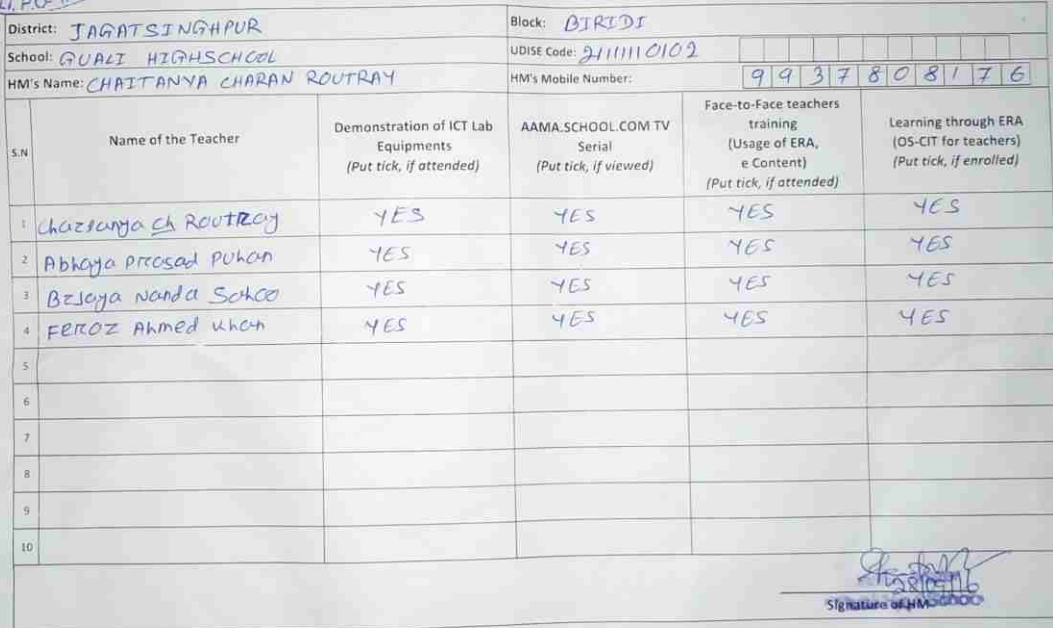 District: JAGATSINGHPUR Block: BIRIDI
School: GUALI HIGHSCHOOL UDISE Code: 21111110102
HM's Name: CHAITANYA CHARAN ROUTRAY HM's Mobile Number: 9937808176
S.N Name of the Teacher Demonstration of ICT Lab Equipments (Put tick, if attended) AAMA.SCHOOL.COM TV Serial (Put tick, if viewed) Face-to-Face teachers training (Usage of ERA, e Content) (Put tick, if attended) Learning through ERA (OS-CIT for teachers) (Put tick, if enrolled)
1 Chaitanya Ch Routray YES YES YES YES
2 Abhaya Prasad Puhan YES YES YES YES
3 Bijaya Nanda Sahoo YES YES YES YES
4 Feroz Ahmed Khan YES YES YES YES
5
6
7
8
9
10
Signature of HM